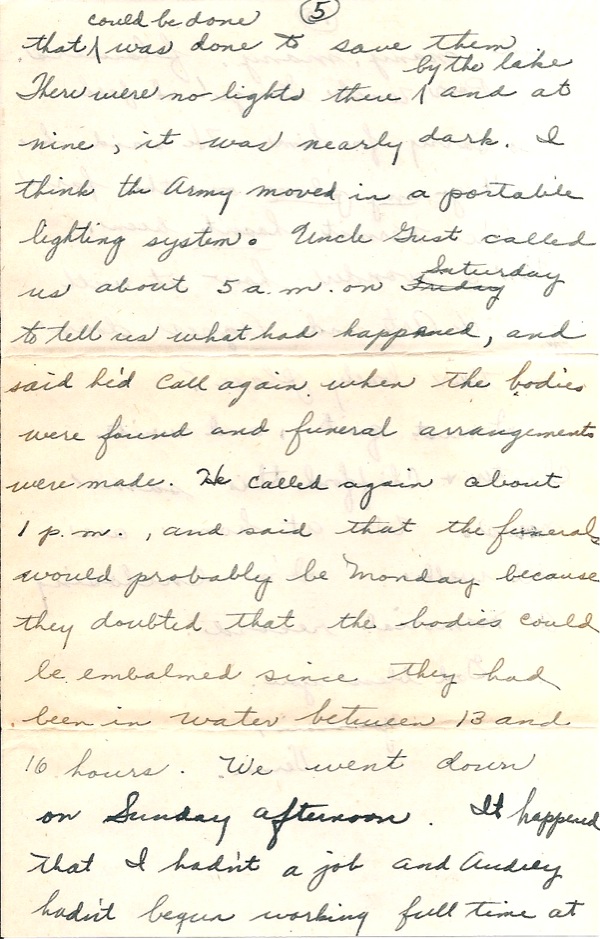 5
could be done
that ^ was done to save them
by the lake
There were no lights there ^ and at
nine, it was nearly dark. I
think the Army moved in a portable
lighting system. Uncle Gust called
Saturday
us about 5 a.m. on Friday
to tell us what had happened, and
said he'd call again when the bodies
were found and funeral arrangements
were made. He called again about
1 p.m., and said that the funerals
would probably be Monday because
they doubted that the bodies could
be embalmed since they had
been in water between 13 and
16 hours. We went down
on Sunday afternoon. It happened
that I hadn't a job and Audrey
hadn't begun working full time at